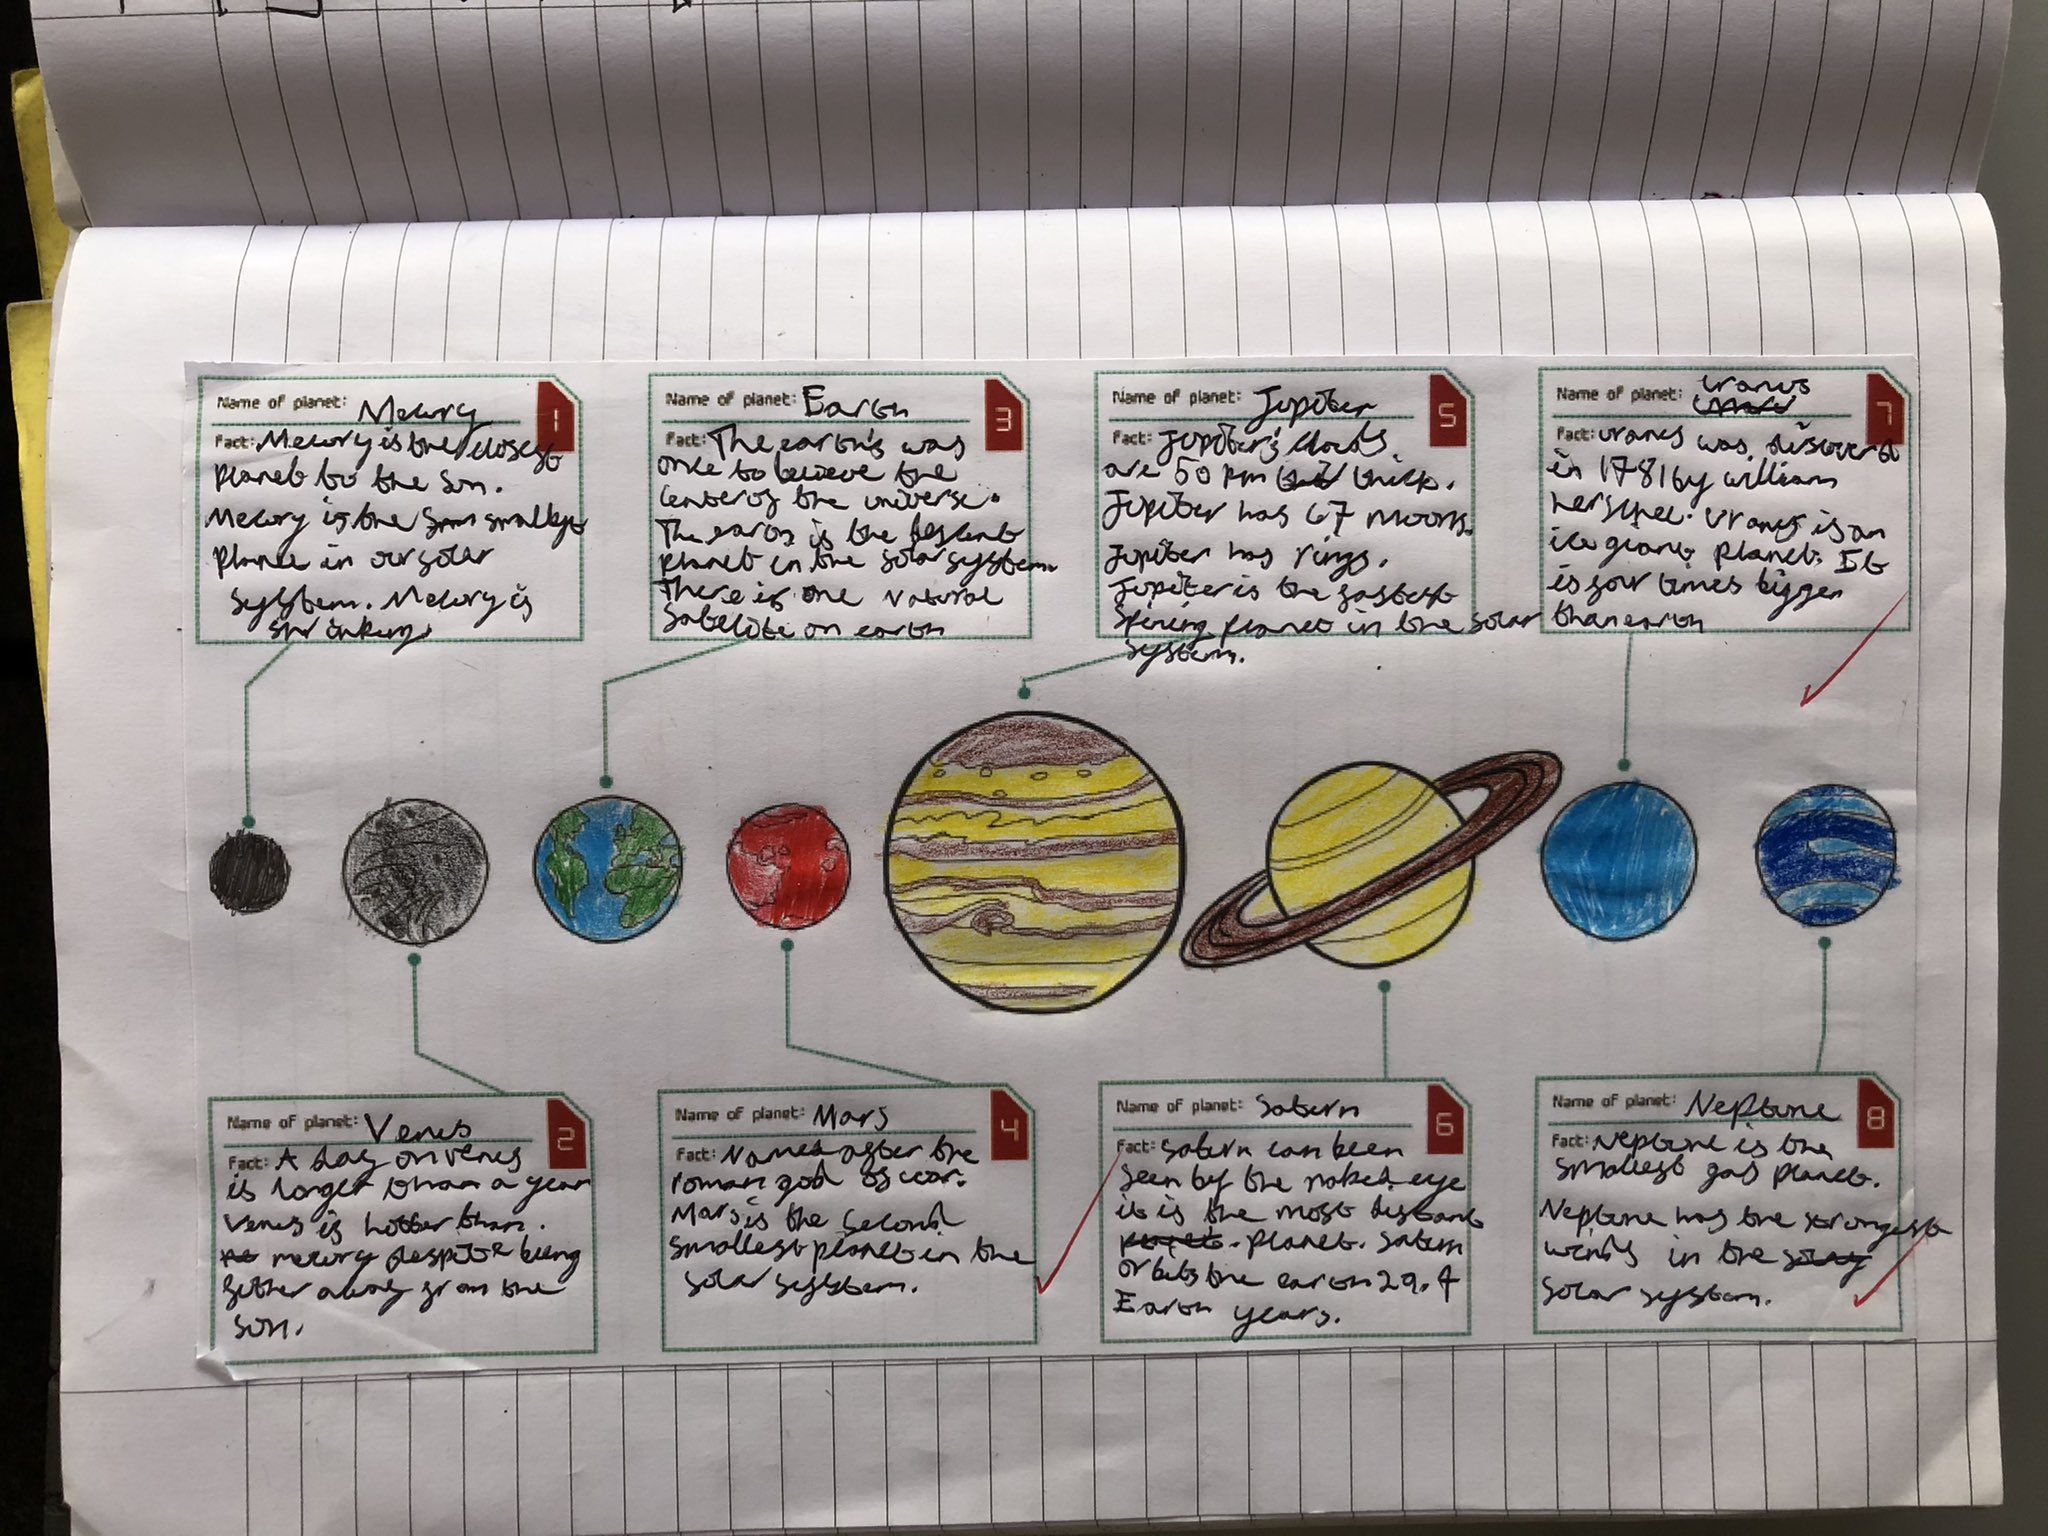 Name of planet: Mecury
1
Fact: Mecury is the closest
planet to the Sun.
Mecury is the smallest
plance in our solar
system. Mecury is
shrinking.
Name of planet: Earth
3
Fact: The earth's was
once to believe the
center of the universe.
The earth is the
planet in the solar system
There is one natural
Satelite on earth
Name of planet: Jupiter
5
Fact: Jupiter's clouds
are 50 thick.
Jupiter has 67 moons.
Jupiter has rings.
Jupiter is the fastest
Spining planet in the solar
system.
Name of planet: Uranus
7
Fact: Uranus was discoverd
in 1781 by william
herschel. Uranus is an
ice giant planet. It
is four times bigger
than earth
Name of planet: Venus
2
Fact: A day on venus
is longer than a year
Venus is hotter than.
mecury despite being
futher away from the
Sun.
Name of planet: Mars
4
Fact: Named after the
roman god of war.
Mars is the Second
smallest planet in the
solar system.
Name of planet: Saturn
6
Fact: Saturn can been
seen by the naked eye
it is the most distant
planet. Saturn
orbits the earth 29.4
Earth years.
Name of planet: Neptune
8
Fact: Neptune is the
smallest gas planet.
Neptune has the strongest
winds in the
solar system.